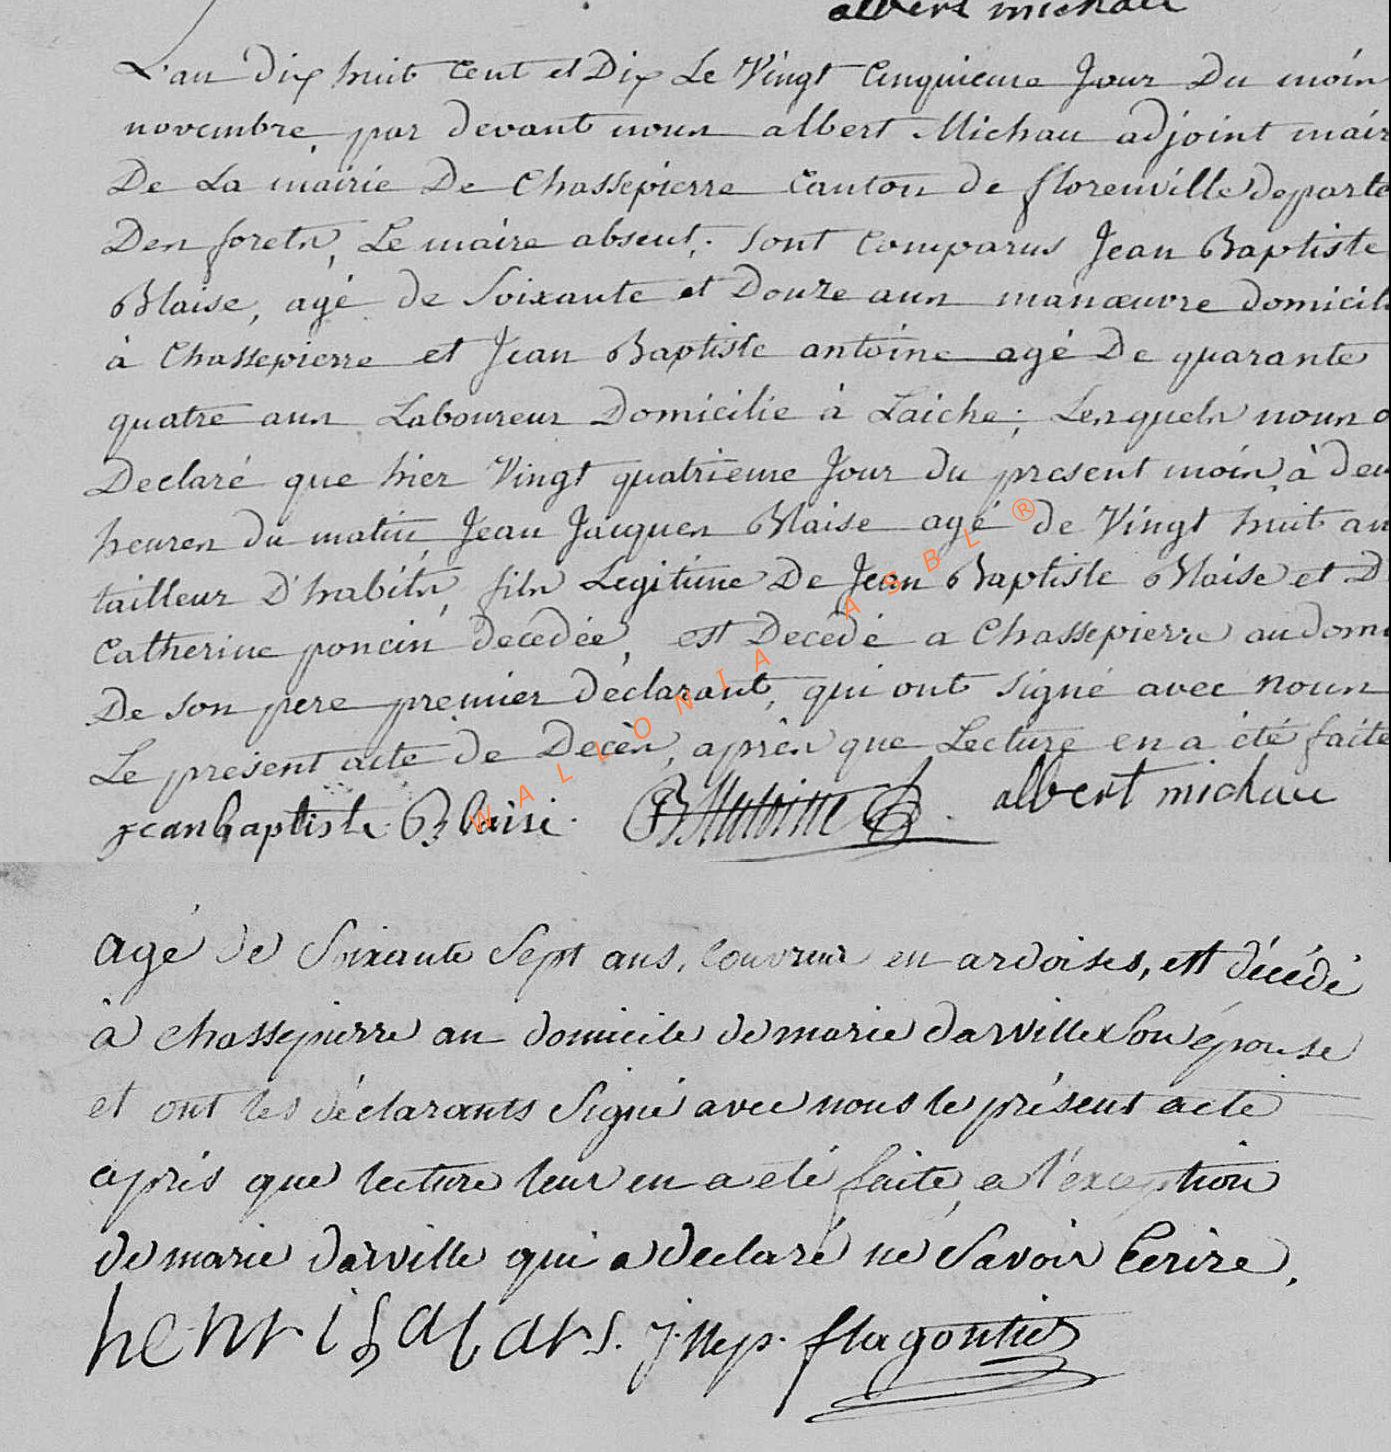 albert michau
L'an dix huit Cent et Dix Le Vingt Cinquieme Jour Du mois
novembre par devant nous albert Michau adjoint mair
De La mairie De Chassepierre Canton de florenville departe
Des forets, Le maire absent. Sont Comparus Jean Baptiste
Blaise, agé de Soixante et Douze ans manœuvre domicili
à Chassepierre et Jean Baptiste antoine agé De quarante
quatre ans Laboureur Domicilie à Laiche; Lesquels nous o
Declaré que hier Vingt quatrieme Jour du present mois, à deu
heures du matin, Jean Jacques Blaise agé de Vingt huit an
tailleur D'habits, fils Legitime De Jean Baptiste Blaise et D
Catherine poncin decedée, est Decedé a Chassepierre au domi
De son pere premier declarant, qui ont signé avec nous
Le présent acte de Decès, après que Lecture en a été faite
jean baptiste Blaise. albert michau
WALLONIA ASBL ®
agé de Soixante Sept ans, Couvreur en ardoises, est décédé
à chassepierre au domicile de marie darville Son épouse
et ont les déclarants Signé avec nous le présent acte
après que lecture leur en a été faite, a l'exception
de marie darville qui a declaré ne Savoir Ecrire.
henri